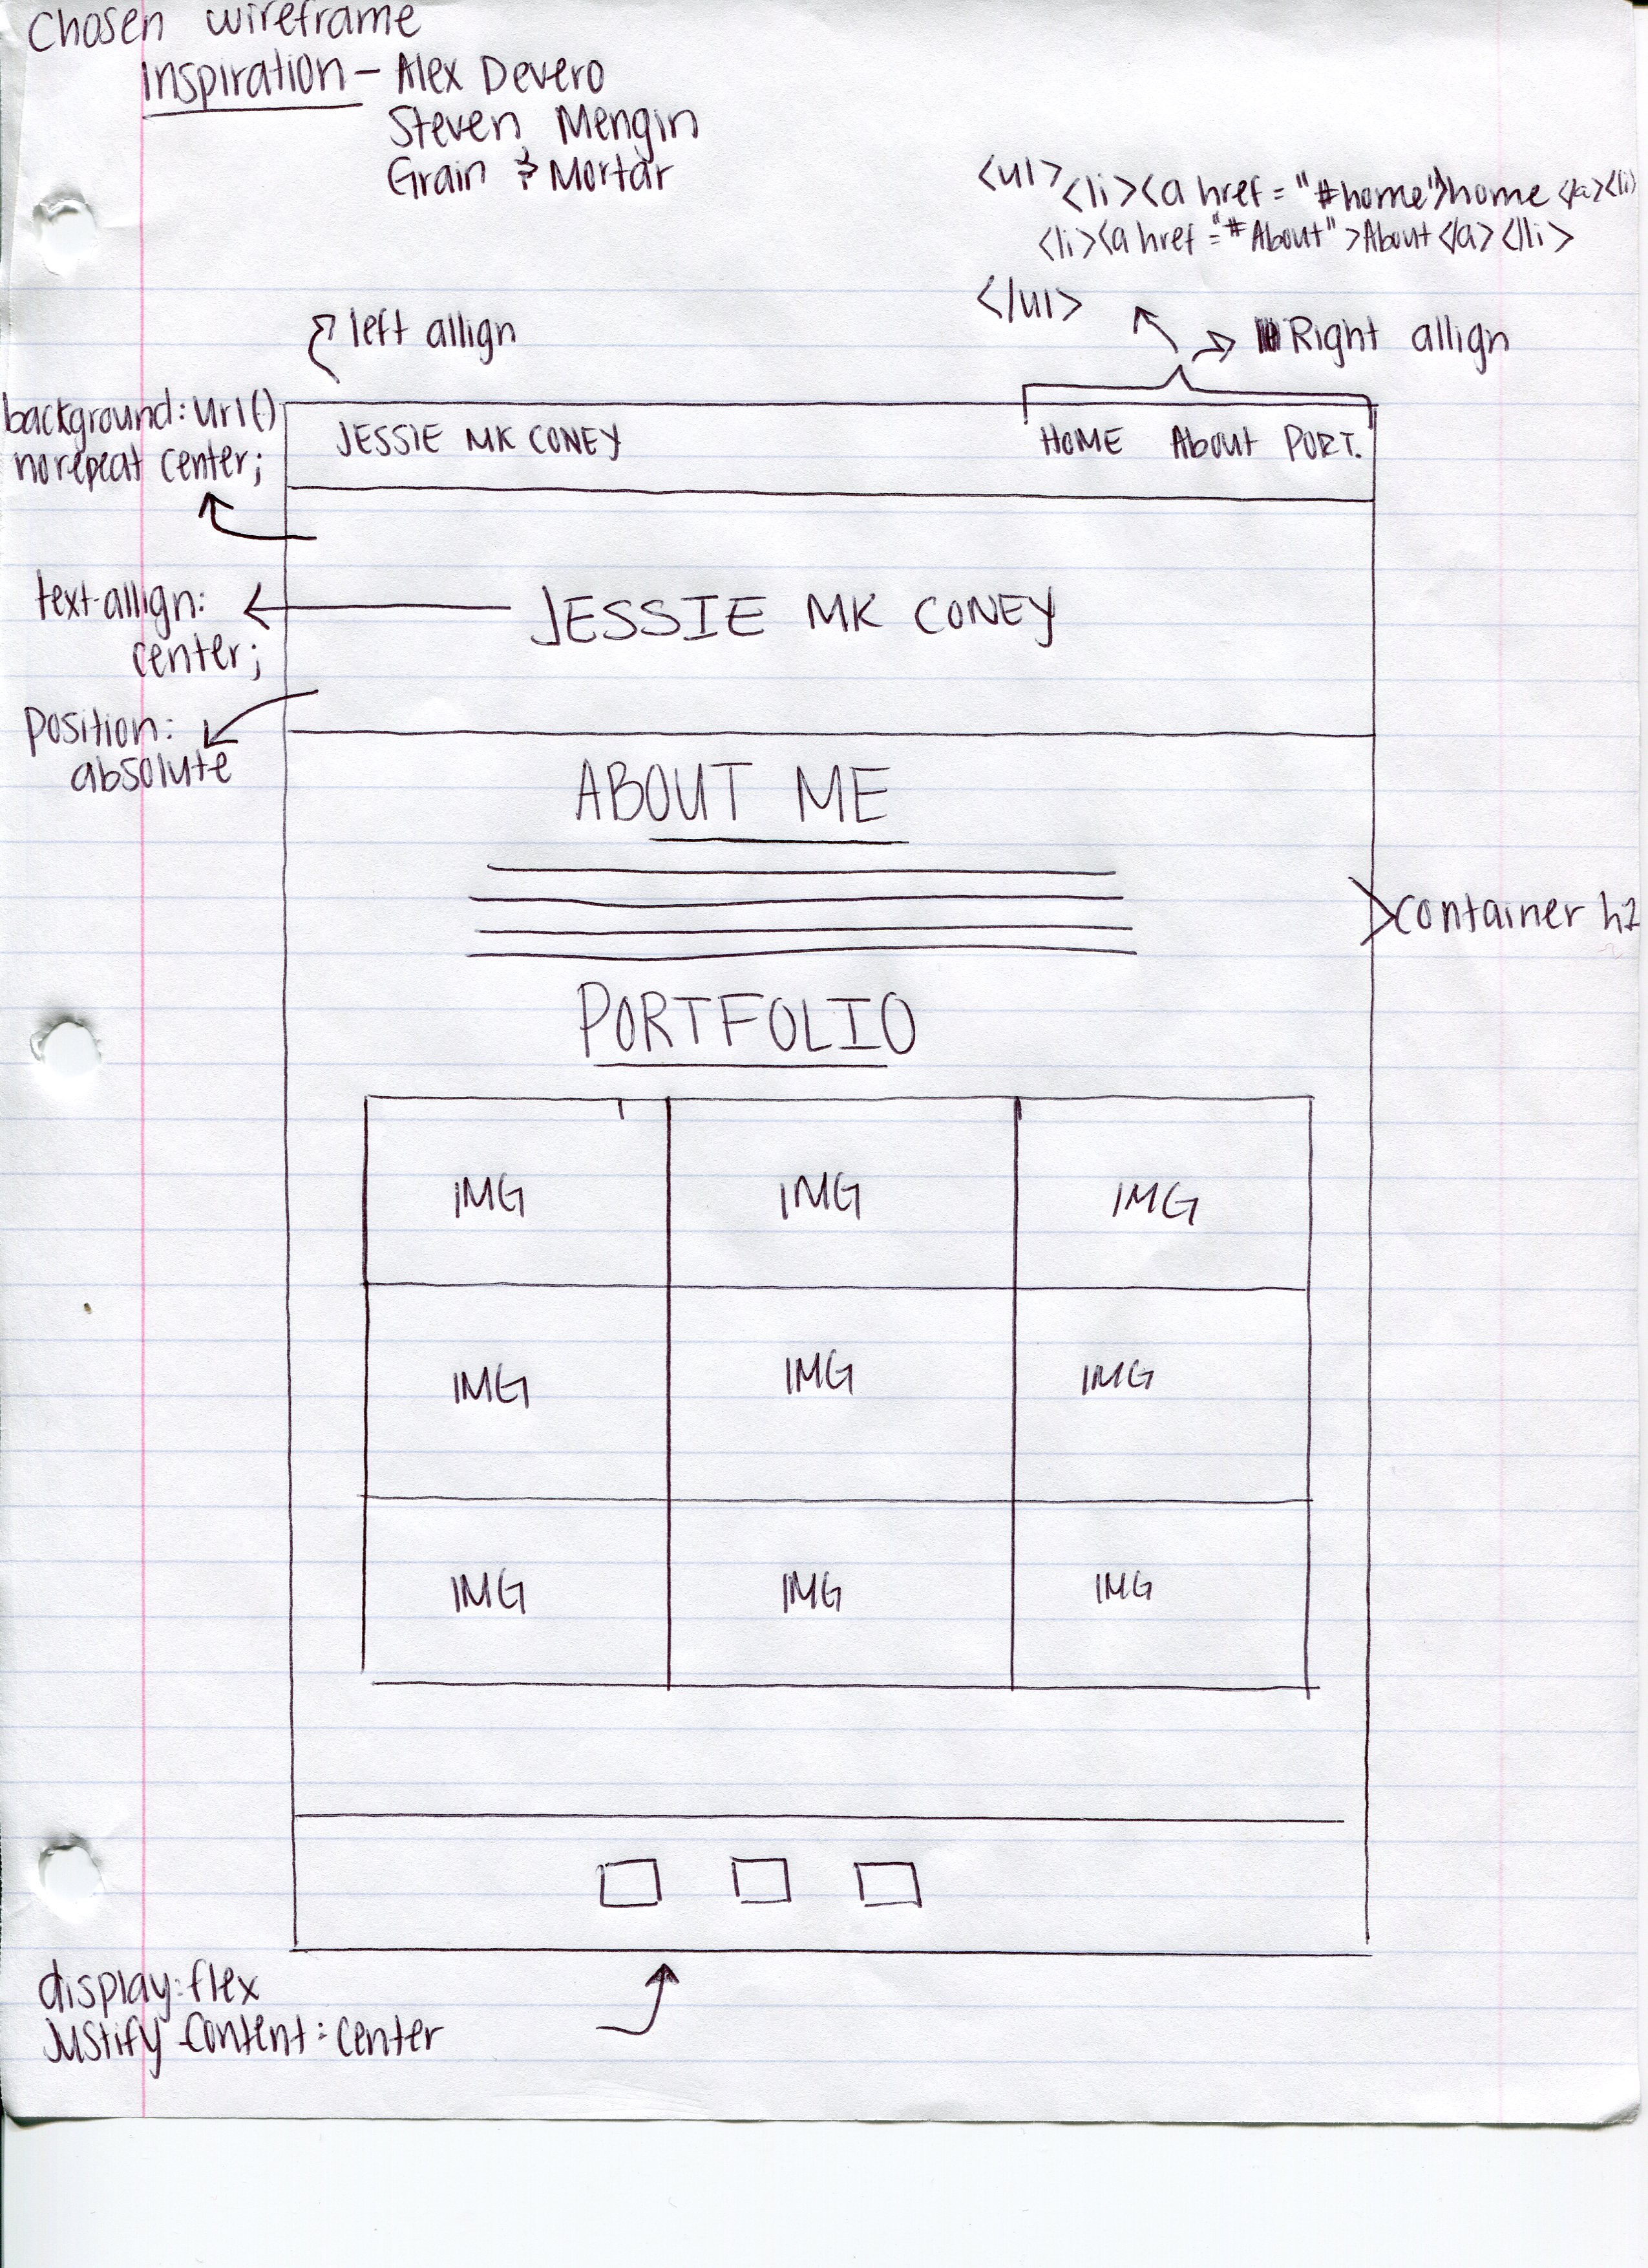 Chosen wireframe
Inspiration - Alex Devero
Steven Mengin
Grain & Mortar
<ul>
<li><a href="#home">home</a><li>
<li><a href="#About">About</a></li>
</ul>
left allign
Right allign
background:url()
norepeat center;
JESSIE MK CONEY
HOME About PORT.
text-allign:
center;
JESSIE MK CONEY
Position:
absolute
ABOUT ME
container h2
PORTFOLIO
IMG IMG IMG
IMG IMG IMG
IMG IMG IMG
display:flex
Justify-content:center